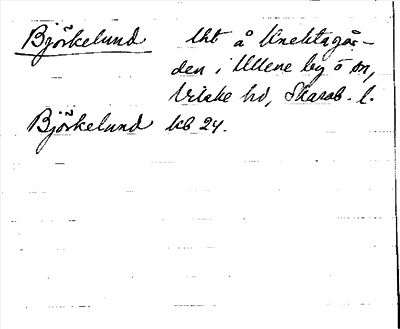 Björkelund Uht å Knektagår-
den i Ullene by o sn,
Vilske hd, Skarab. l.
Björkelund kb 24.